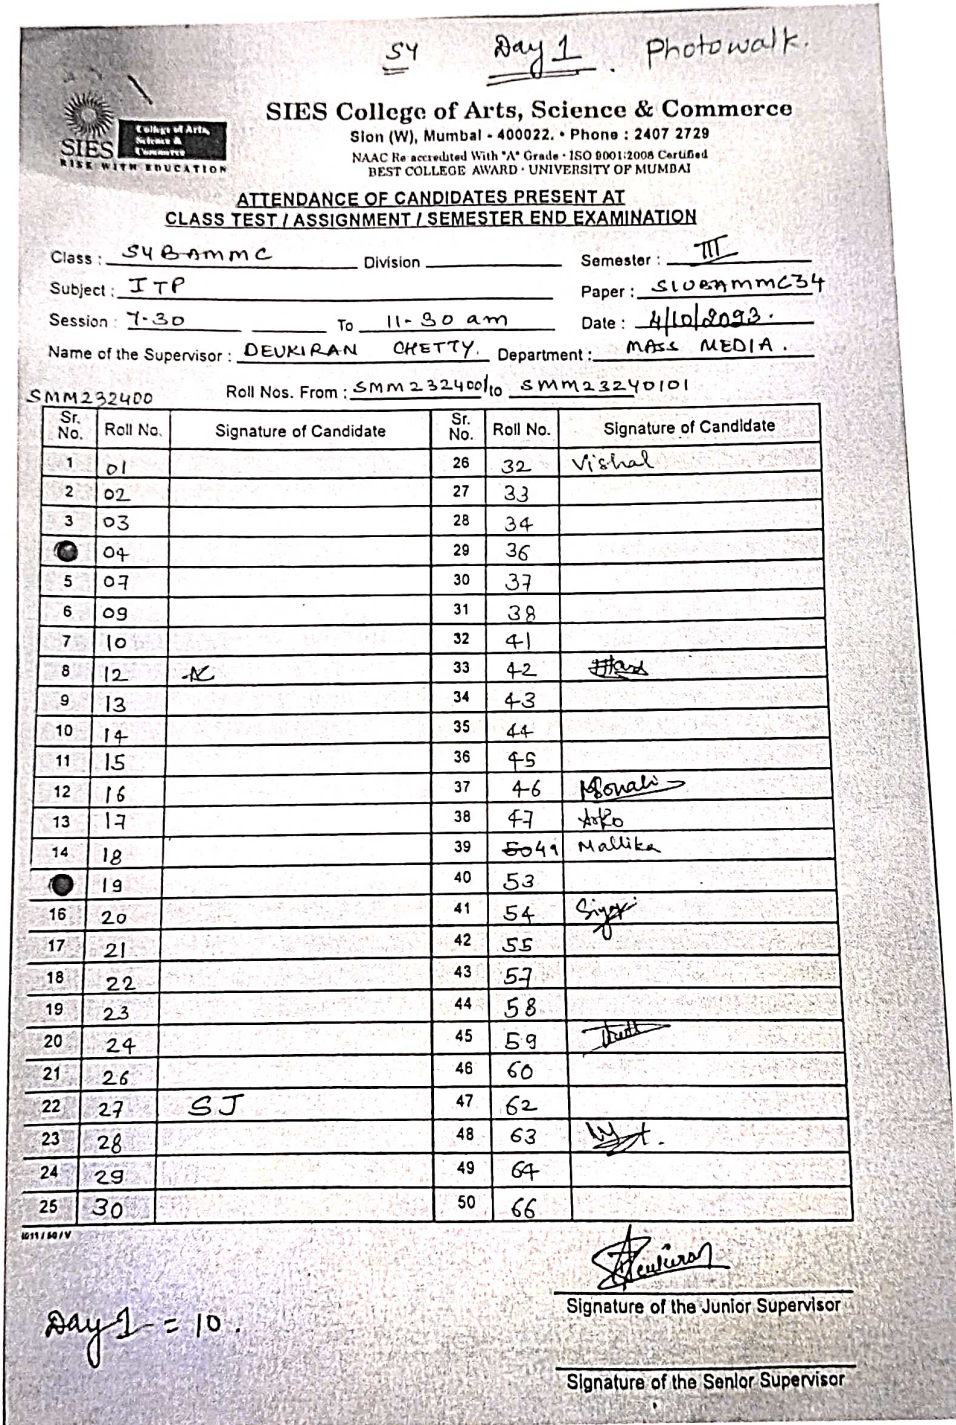 SY Day 1. Photowalk.
SIES College of Arts, Science & Commerce
SIES RISE WITH EDUCATION
College of Arts, Science & Commerce
Sion (W), Mumbai - 400022. • Phone : 2407 2729
NAAC Re accredited With "A" Grade · ISO 9001:2008 Certified
BEST COLLEGE AWARD · UNIVERSITY OF MUMBAI
ATTENDANCE OF CANDIDATES PRESENT AT
CLASS TEST / ASSIGNMENT / SEMESTER END EXAMINATION
Class : SYBAMMC Division Semester : III
Subject : ITP Paper : SIUBAMMC34
Session : 7-30 To 11-30 am Date : 4/10/2023.
Name of the Supervisor : DEVKIRAN CHETTY. Department : MASS MEDIA.
Roll Nos. From : SMM2324001 to SMM23240101
SMM232400
Sr. No. Roll No. Signature of Candidate Sr. No. Roll No. Signature of Candidate
1 01 26 32 Vishal
2 02 27 33
3 03 28 34
04 29 36
5 07 30 37
6 09 31 38
7 10 32 41
8 12 33 42
9 13 34 43
10 14 35 44
11 15 36 45
12 16 37 46 Monali
13 17 38 47
14 18 39 50 49 Mallika
19 40 53
16 20 41 54
17 21 42 55
18 22 43 57
19 23 44 58
20 24 45 59
21 26 46 60
22 27 SJ 47 62
23 28 48 63
24 29 49 64
25 30 50 66
Day 1 = 10.
Signature of the Junior Supervisor
Signature of the Senior Supervisor